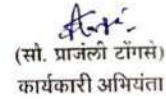 (सो. प्राजंली टोंगसे)
कार्यकारी अभियंता